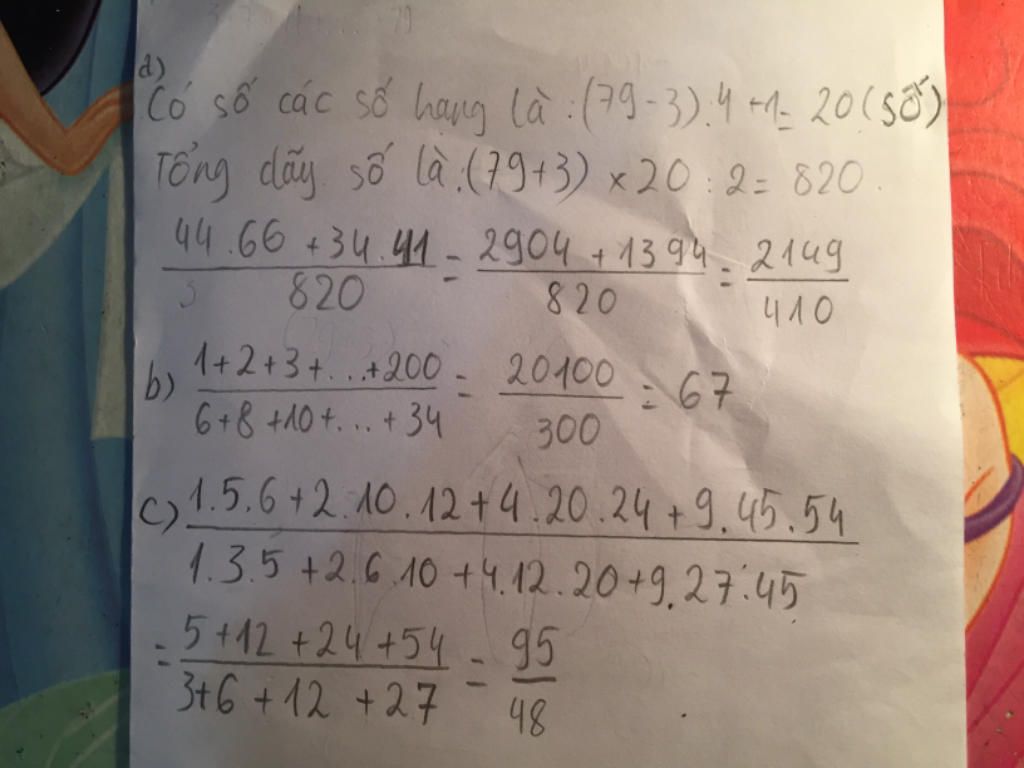 a)
Có số các số hạng là:(79-3):4+1=20(số)
Tổng dãy số là:(79+3)×20:2=820.
44.66+34.41/820=2904+1394/820=2149/410
b) 1+2+3+...+200/6+8+10+...+34=20100/300=67
c) 1.5.6+2.10.12+4.20.24+9.45.54/1.3.5+2.6.10+4.12.20+9.27.45
=5+12+24+54/3+6+12+27=95/48